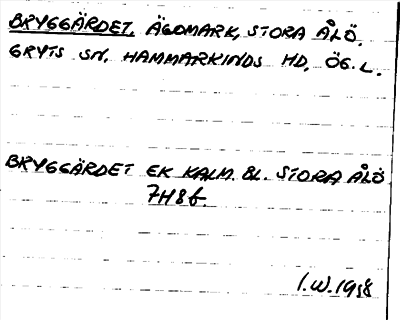 BRYGGÄRDET, ÄGOMARK, STORA ÅLÖ.
GRYTS SN, HAMMARKINDS HD, ÖG. L.
BRYGGÄRDET EK KALM. BL. STORA ÅLÖ
7H8f.
I.W. 1958